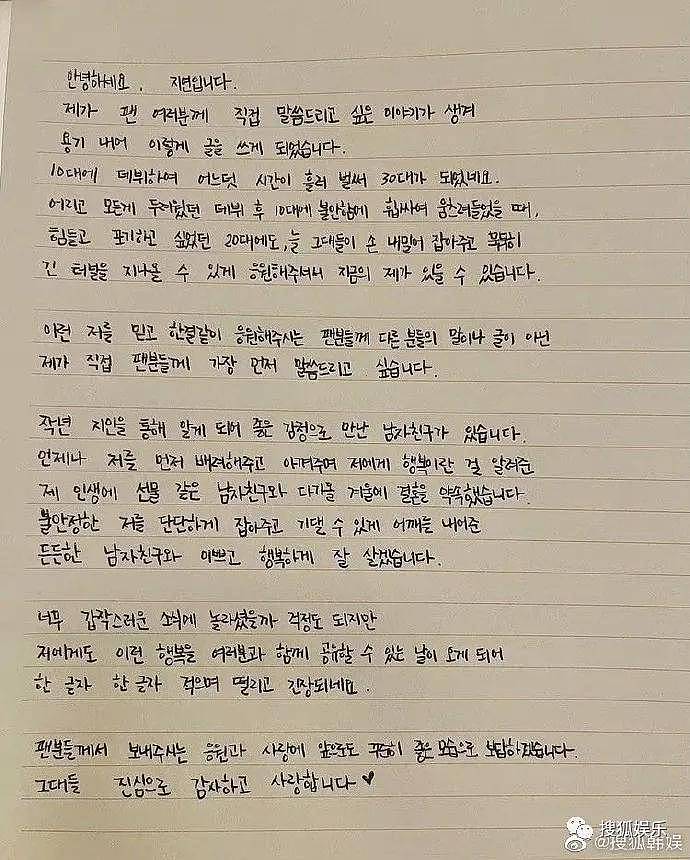 안녕하세요. 지연입니다.
제가 팬 여러분께 직접 말씀드리고 싶은 이야기가 생겨
용기 내어 이렇게 글을 쓰게 되었습니다.
10대에 데뷔하여 어느덧 시간이 흘러 벌써 30대가 되었네요.
어리고 모든게 두려웠던 데뷔 후 10대에 불안함에 휩싸여 움츠려들었을 때,
힘들고 포기하고 싶었던 20대에도, 늘 그대들이 손 내밀어 잡아주고 묵묵히
긴 터널을 지나올 수 있게 응원해주셔서 지금의 제가 있을 수 있습니다.
이런 저를 믿고 한결같이 응원해주시는 팬분들께 다른 분들의 말이나 글이 아닌
제가 직접 팬분들께 가장 먼저 말씀드리고 싶습니다.
작년 지인을 통해 알게 되어 좋은 감정으로 만난 남자친구가 있습니다.
언제나 저를 먼저 배려해주고 아껴주며 저에게 행복이란 걸 알려준
제 인생에 선물 같은 남자친구와 다가올 겨울에 결혼을 약속했습니다.
불안정한 저를 단단하게 잡아주고 기댈 수 있게 어깨를 내어준
든든한 남자친구와 이쁘고 행복하게 잘 살겠습니다.
너무 갑작스러운 소식에 놀라셨을까 걱정도 되지만
저에게도 이런 행복을 여러분과 함께 공유할 수 있는 날이 오게 되어
한 글자 한 글자 적으며 떨리고 긴장되네요.
팬분들께서 보내주시는 응원과 사랑에 앞으로도 꾸준히 좋은 모습으로 보답하겠습니다.
그대들 진심으로 감사하고 사랑합니다♥
搜狐娱乐
@搜狐韩娱